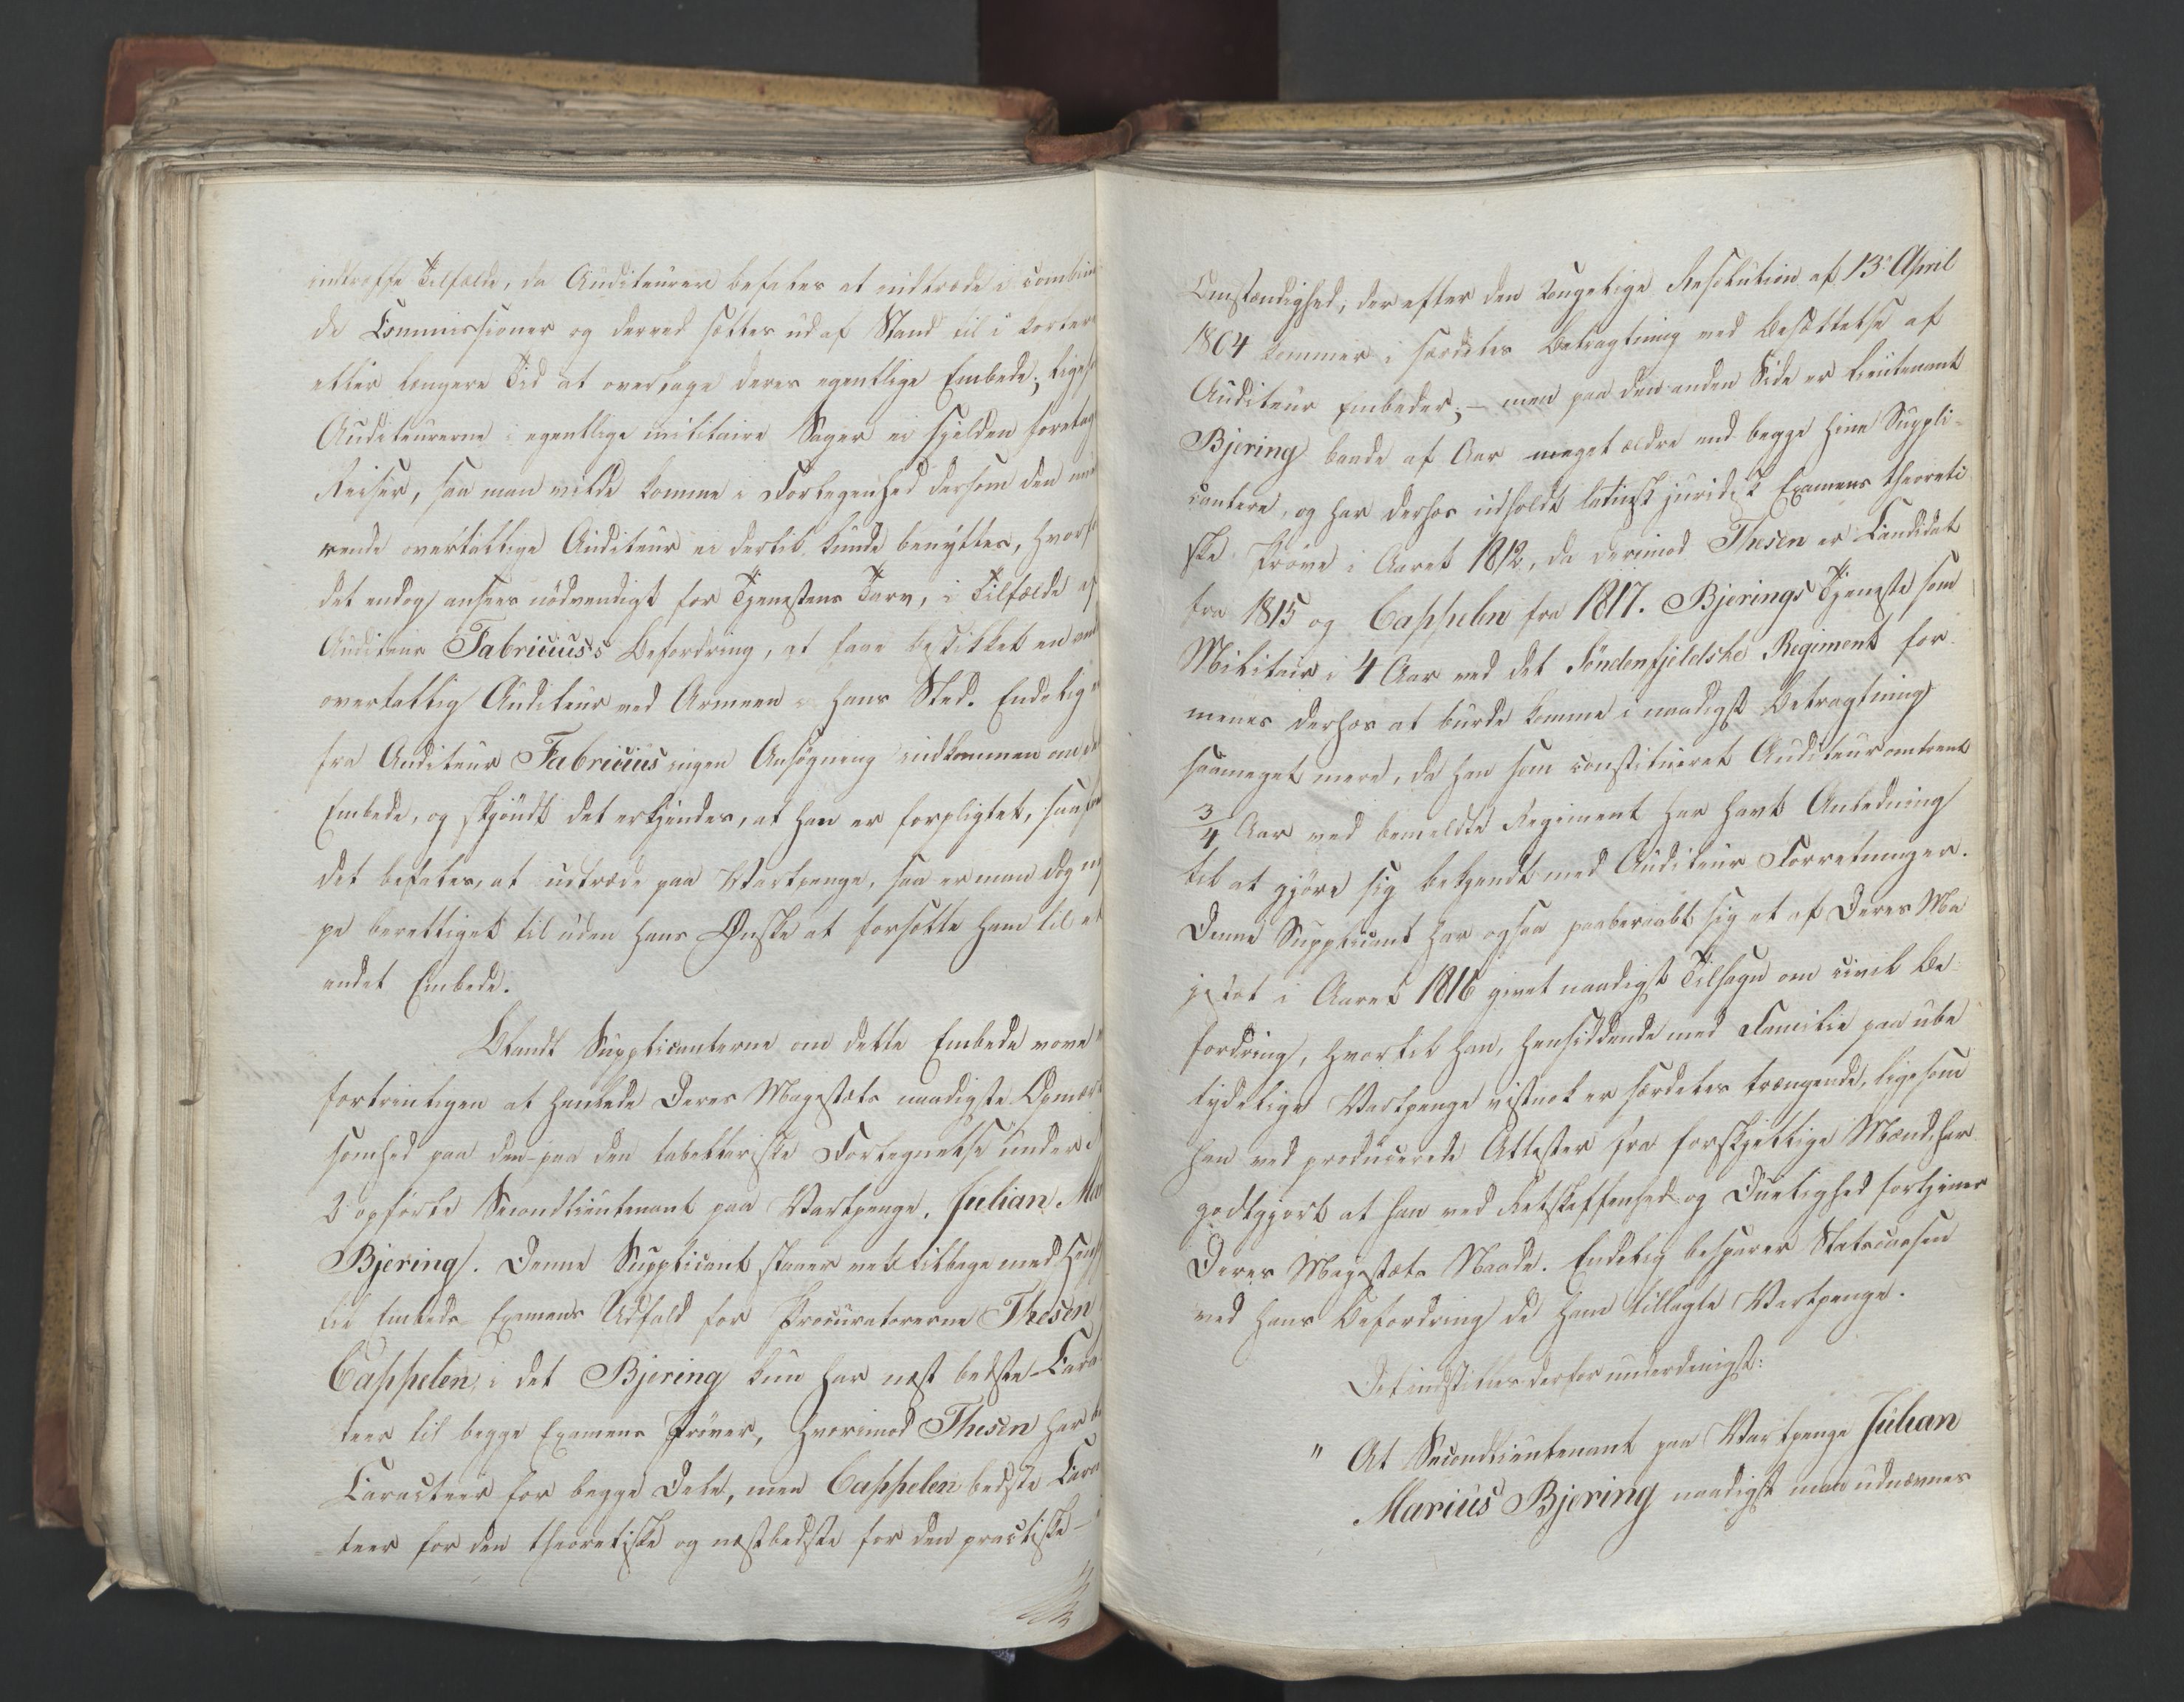 indtræffe Tilfælde, da Auditeurer befales at indtræde i combine
de Commissioner og derved sættes ud af Stand til i kortere
eller længere Tid at overtage deres egentlige Embede; ligesom
Auditeurerne i egentlige militaire Sager ei sjelden foretage
Reiser, saa man vilde komme i Forlegenhed dersom den nu
rende overtallige Auditeur ei dertil kunde benyttes, hvorfor
det endog ansees nödvendigt for Tjenestens Tarv, i Tilfælde af
Auditeur Fabriciuss Befordring, at faae beskikket en anden
overtallig Auditeur ved Armeen i hans Sted. Endelig er
fra Auditeur Fabricius ingen Ansögning indkommen om dette
Embede, og skjöndt det erkjendes, at han er forpligtet, saafremt
det befales, at udtræde paa Vartpenge, saa er man dog
pe berettiget til uden hans Önske at forsætte ham til et
andet Embede.
Blandt Supplicanterne om dette Embede vove
fortrinligen at henlede Deres Majestæts naadigste Opmærk
somhed paa den paa den tabellariske Fortegnelse under
3 opförte Secondlieutenant paa Vartpenge, Julian Ma
Bjering. Denne Supplicant staaer vel tilbage med Hensyn
til Embeds Examens Udfald for Procuratorerne Thesen
Cappelen, i det Bjering kun har næst bedste Carac
teer til begge Examens Pröver, hvorimod Thesen har
Caracteer for begge Dele, men Cappelen bedste Carac
teer for den theoretiske og næstbedste for den practiske –
Omstændighed, der efter den kongelige Resolution af 13de April
1804 kommer i særdeles Betragtning ved Besættelse af
Auditeur Embeder; – men paa den anden Side er Lieutenant
Bjering baade af Aar meget ældre end begge hine Suppli-
canter, og har derhos udholdt latinsk juridisk Examens theoreti
ske Pröve i Aaret 1812, da derimod Thesen er Candidat
fra 1815 og Cappelen fra 1817. Bjerings Tjeneste som
Militair i 4 Aar ved det Söndenfjeldske Regiment for-
menes derhos at burde komme i naadigst Betragtning
saameget mere, da han som constitueret Auditeur omtrent
3/4 Aar ved bemeldte Regiment har havt Anledning
til at gjöre sig bekjendt med Auditeur Forretninger.
Denne Supplicant har ogsaa paaberaabt sig et af Deres Ma
jestæt i Aaret 1816 givet naadigst Tilsagn om civil Be-
fordring, hvortil han, hensiddende med Familie paa ube
tydelige Vartpenge vistnok er særdeles trængende, ligesom
han ved producerede Attester fra forskjellige Mænd har
godtgjort at han ved Retskaffenhed og Duelighed fortjener
Deres Majestæts Naade. Endelig besparer Statscassen
ved hans Befordring de ham tillagte Vartpenge.
Det indstilles derfor underdanigst:
" At Secondlieutenant paa Vartpenge Julian
Marius Bjering naadigst maa udnævnes